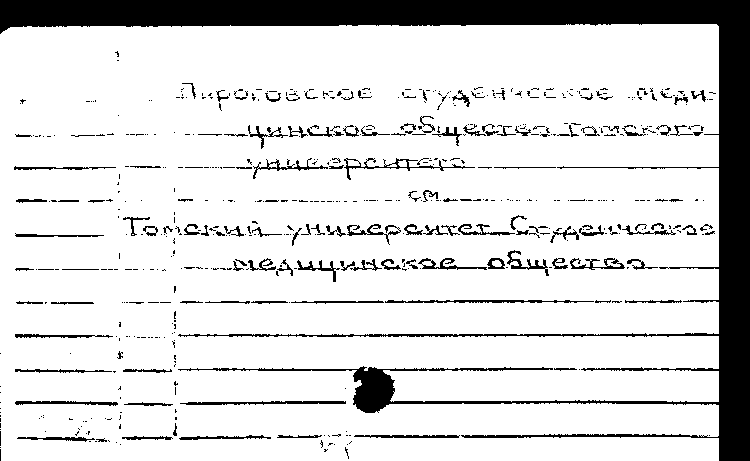 Пироговское студенческое меди-
цинское общество Томского
университета
см.
Томский университет Студенческое
медицинское общество